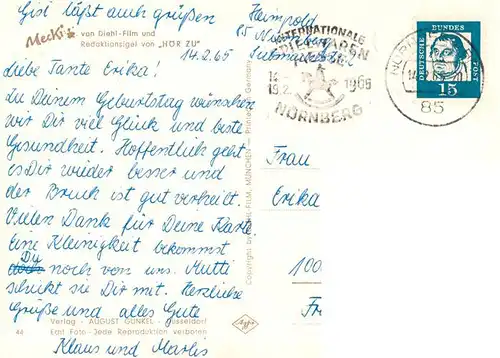 Gisi läßt auch grüßen
Mecki
von Diehl-Film und
Redaktionsigel von „HÖR ZU"
14.2.65
Liebe Tante Erika!
Zu Deinem Geburtstag wünschen
wir Dir viel Glück und beste
Gesundheit. Hoffentlich geht
es Dir wieder besser und
der Bruch ist gut verheilt.
Vielen Dank für Deine Karte.
Eine Kleinigkeit bekommst
Du
noch von uns. Mutti
schickt sie Dir mit. Herzliche
Grüße und alles Gute
Verlag · AUGUST GUNKEL · Düsseldorf
44
Edit Foto · Jede Reproduktion verboten
Klaus und Marlis
Copyright by DIEHL-FILM, MÜNCHEN · Printed in Germany
Agfa
Heimpold
85
INTERNATIONALE
SPIELWAREN
MESSE
14.
19.2.
1965
NÜRNBERG
85
DEUTSCHE
BUNDES
POST
15
Frau
Erika
100